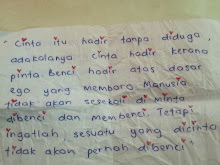 "Cinta itu hadir tanpa diduga,
adakalanya cinta hadir kerana
pinta. Benci hadir atas dasar
ego yang membara. Manusia
tidak akan sesekali di minta
dibenci dan membenci. Tetapi
ingatlah, sesuatu yang dicintai
tidak akan pernah dibenci"